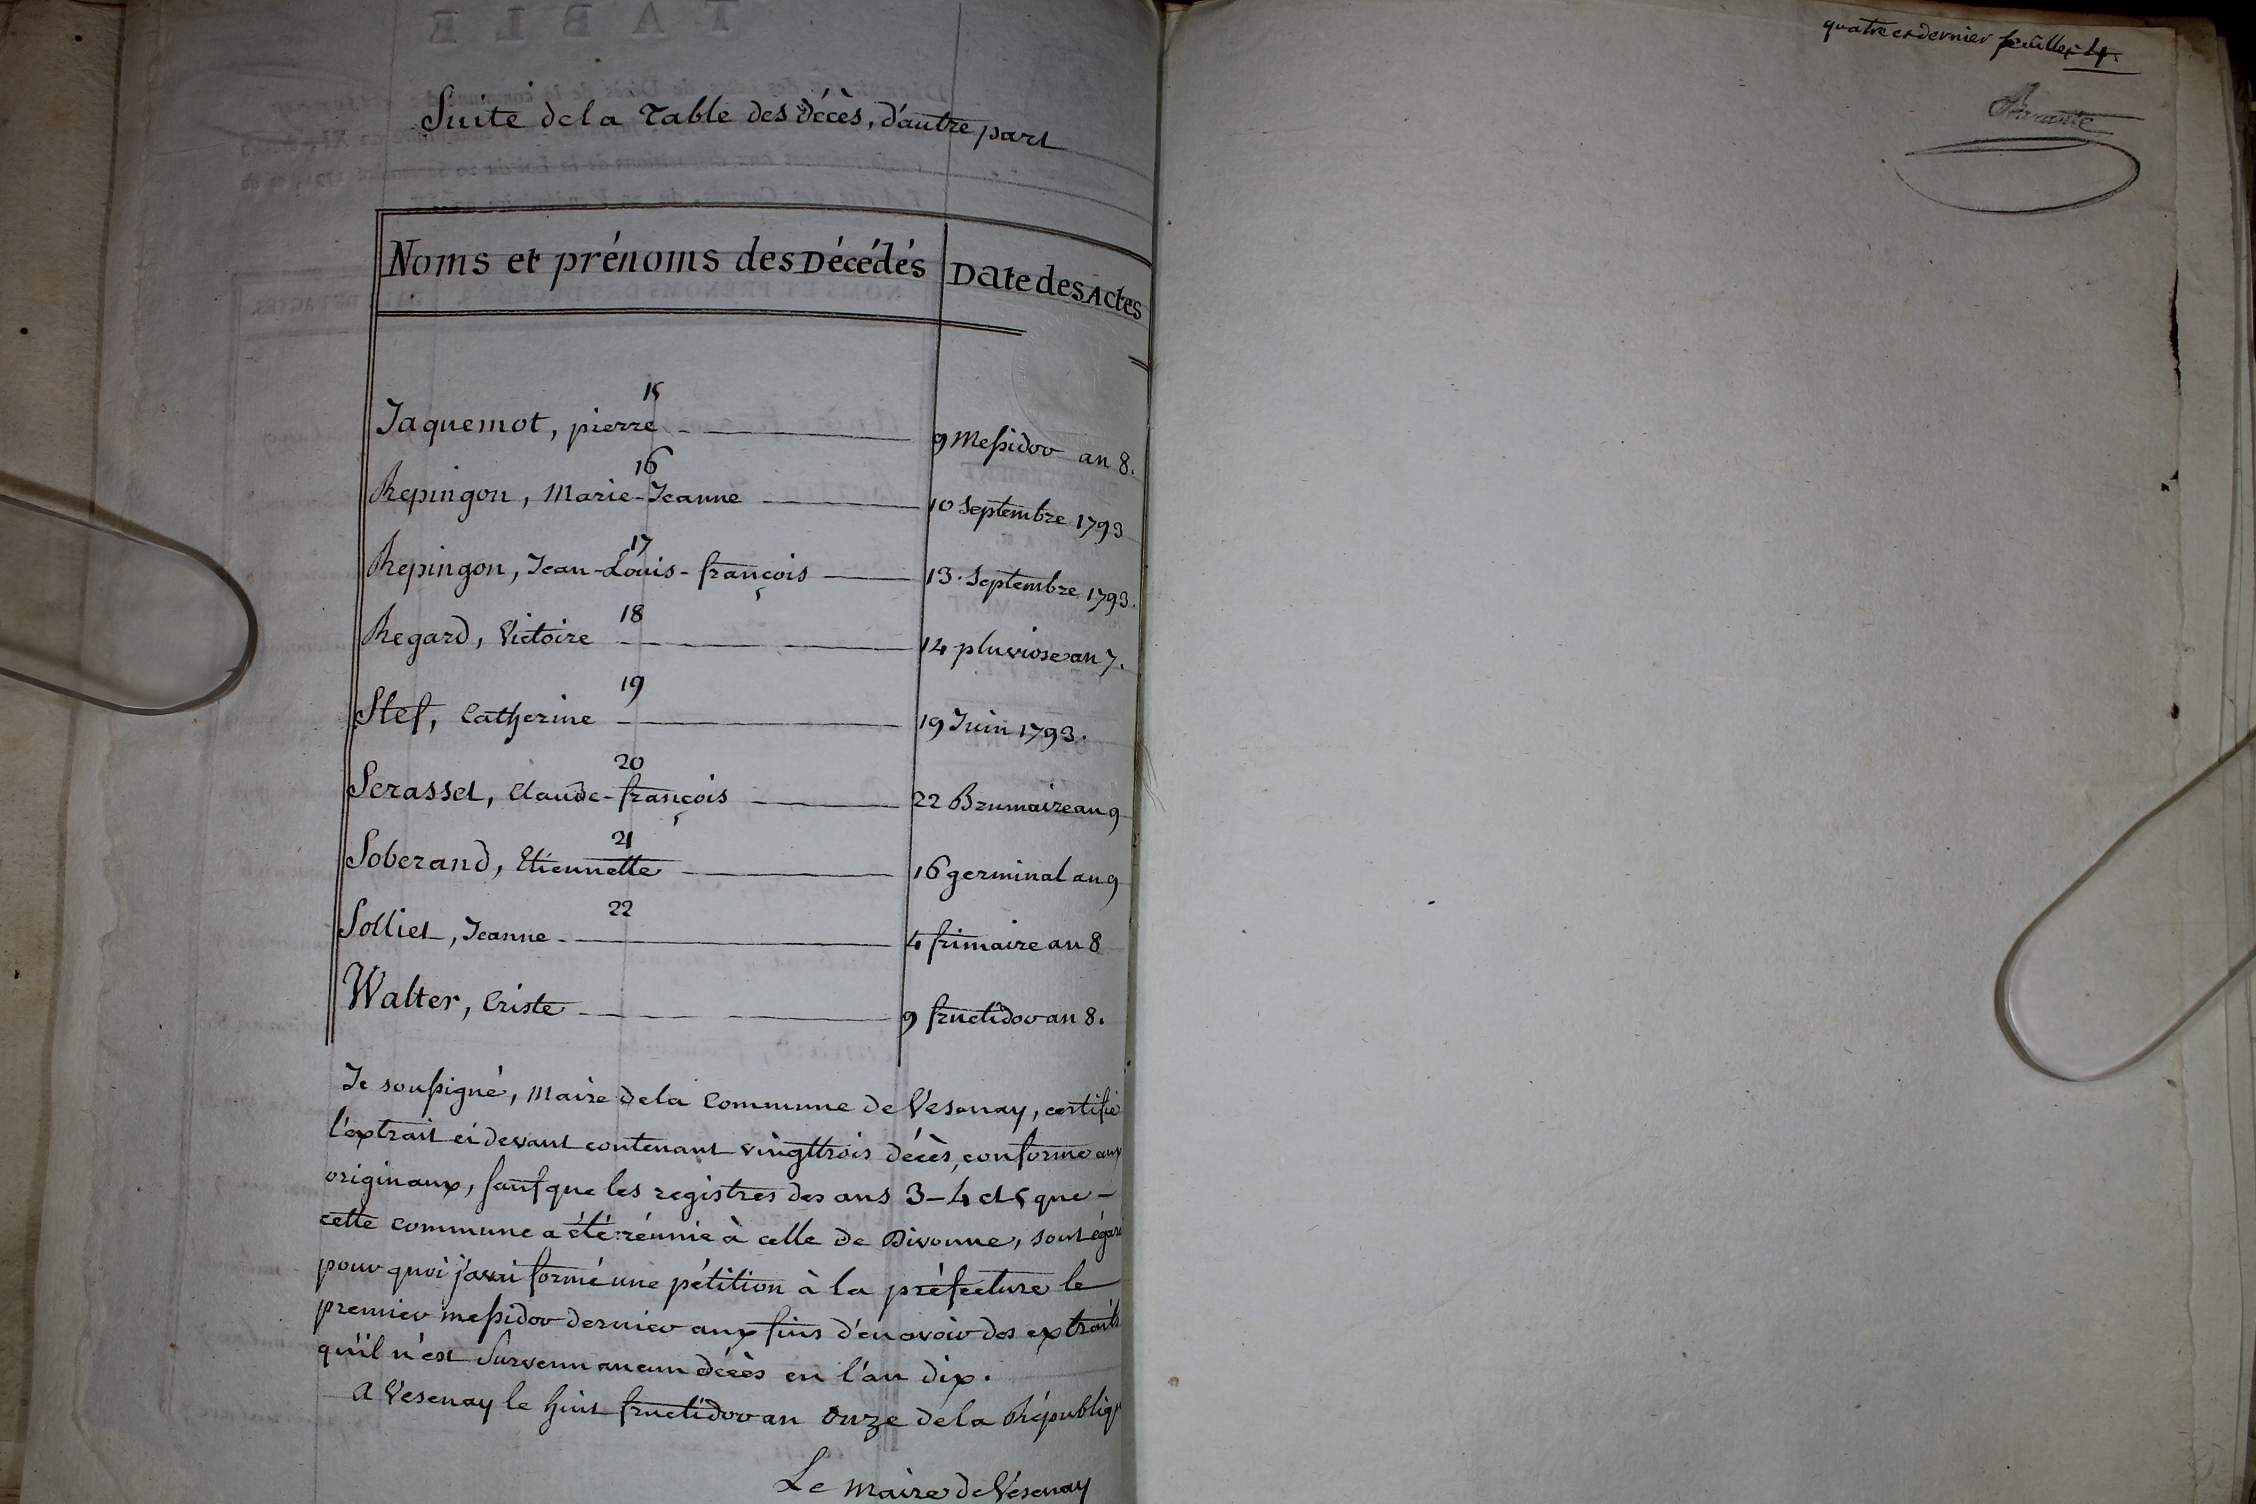 Suite de la Table des décès, d'autre part
Noms et prénoms des Décédés Date des Actes
15
Jaquemot, pierre 9 Messidor an 8.
16
Repingon, Marie-Jeanne 10 Septembre 1793
17
Repingon, Jean-Louis-françois 13. Septembre 1793.
18
Regard, Victoire 14 pluviose an 7.
19
Stef, Catherine 19 Juin 1793.
20
Serasset, Claude-françois 22 Brumaire an 9
21
Soberand, Etiennette 16 germinal an 9
22
Solliet, Jeanne 4 frimaire an 8
Walter, Criste 9 fructidor an 8.
Je soussigné, Maire de la Commune de Vesenay, certifie
l'extrait ci devant contenant vingttrois décès, conforme aux
originaux, sauf que les registres des ans 3-4 et 5 que-
cette commune a été réunie à celle de Divonne, sont égaré
pour quoi j'avai formé une pétition à la préfecture le
premier messidor dernier aux fins d'en avoir des extraits
qu'il n'est survenu aucun décès en l'an dix.
A Vesenay le huit fructidor an onze de la Républiq
Le Maire de Vésenay
quatre et dernier feuillet 4.